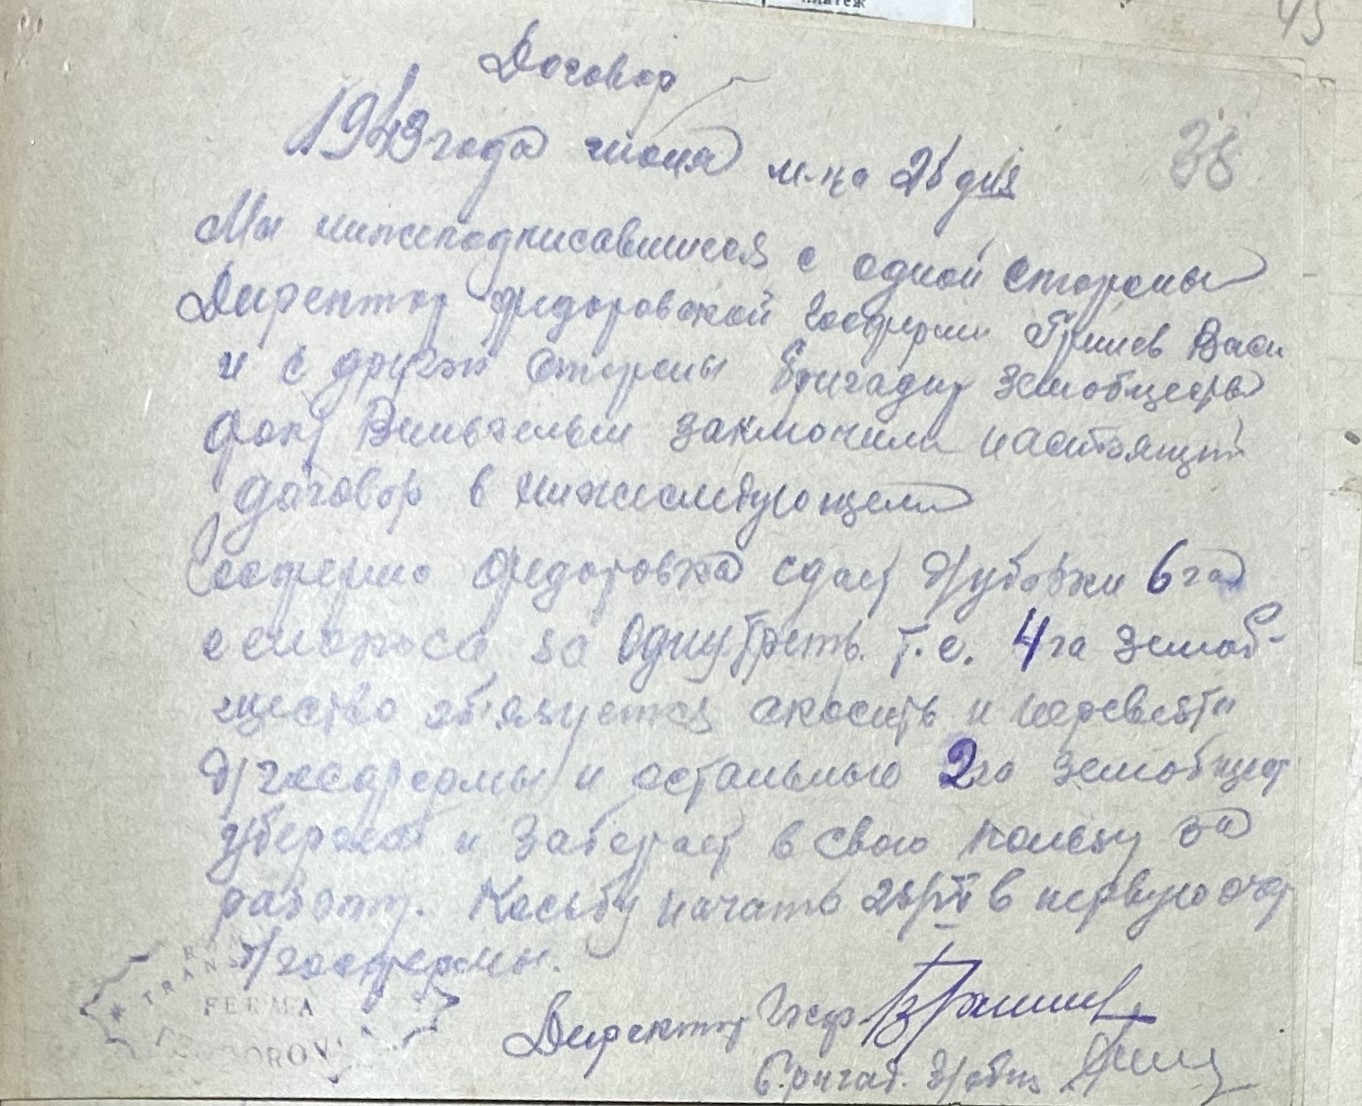 платеж
45
38
Договор
1943 года июня м-ца 25 дня
Мы нижеподписавшиеся с одной стороны
Директор Федоровской Госфермы Гришев Васи
и с другой стороны бригадир Земобщества
Фокт Вильгельм заключили настоящий
договор в нижеследующем
Госферма Федоровка сдает д/уборки 6 га
сенокоса за одну треть т.е. 4 га Земоб-
щество обязуется скосить и перевезти
д/госфермы и остальные 2 га Земобщест
уберает и заберает в свою пользу за
работу. Косьбу начать 28/VI в первую очер
д/госфермы.
TRANS
FERMA
Директор Госф.
бригад. З/общ